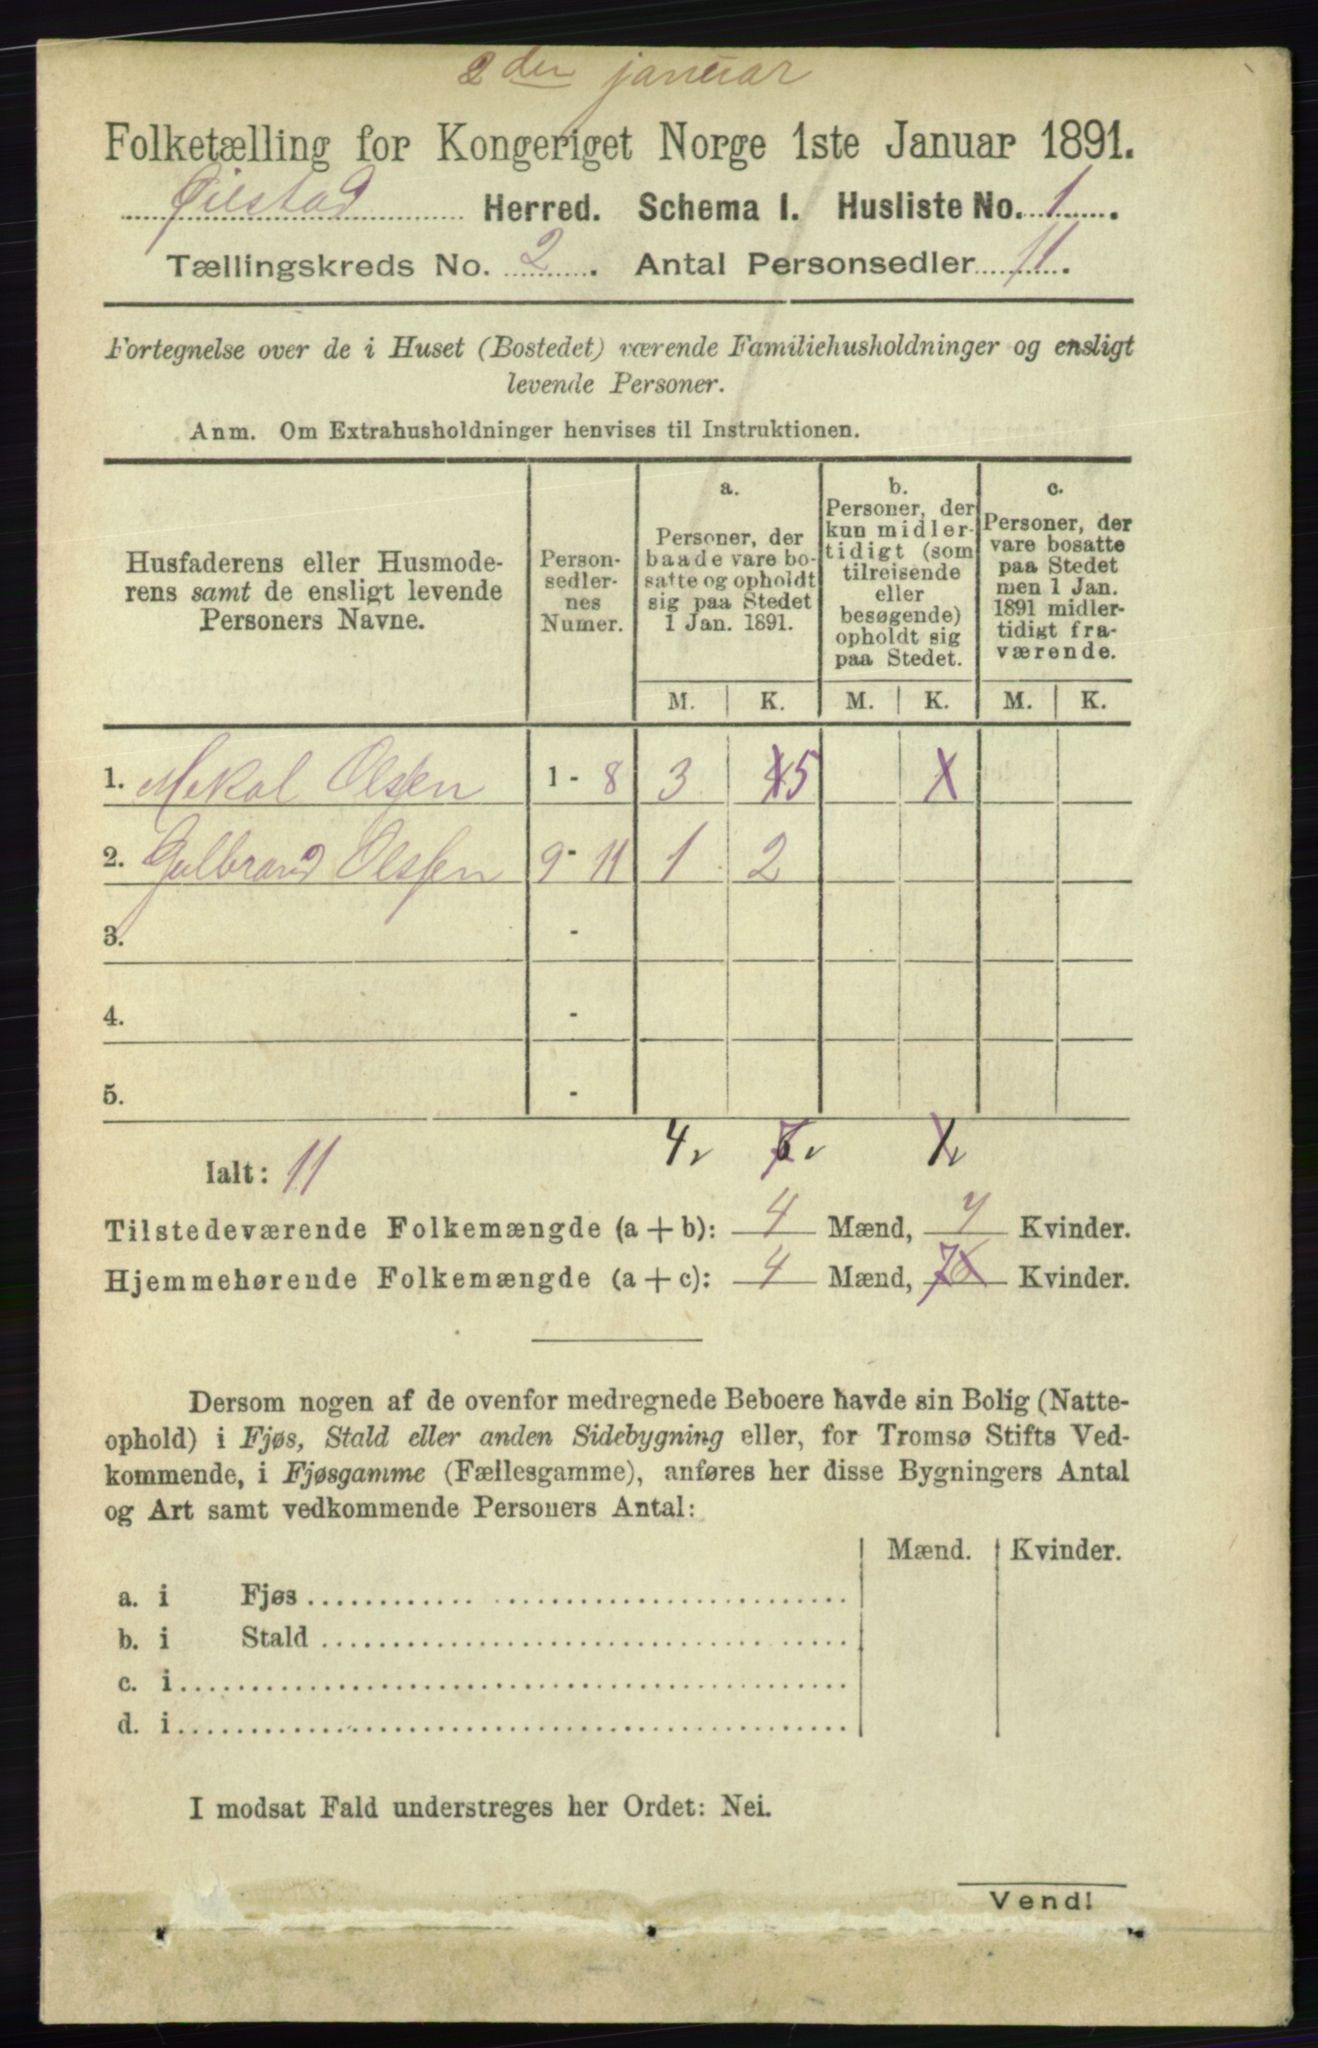 2den januar
Folketælling for Kongeriget Norge 1ste Januar 1891.
Øiestad Herred. Schema I. Husliste No. 1.
Tællingskreds No. 2. Antal Personsedler 11.
Fortegnelse over de i Huset (Bostedet) værende Familiehusholdninger og ensligt
levende Personer.
Anm. Om Extrahusholdninger henvises til Instruktionen.
Husfaderens eller Husmode-
rens samt de ensligt levende
Personers Navne.
Person-
sedler-
nes
Numer.
a.
Personer, der
baade vare bo-
satte og opholdt
sig paa Stedet
1 Jan. 1891.
b.
Personer, der
kun midler-
tidigt (som
tilreisende
eller
besøgende)
opholdt sig
paa Stedet.
c.
Personer, der
vare bosatte
paa Stedet
men 1 Jan.
1891 midler-
tidigt fra-
værende.
M. K. M. K. M. K.
1. Mekal Olsen 1 - 8 3 4 5 1
2. Gulbrand Olsen 9 - 11 1 2
3. -
4. -
5. -
4 7 1
Ialt: 11
Tilstedeværende Folkemængde (a + b): 4 Mænd, 7 Kvinder.
Hjemmehørende Folkemængde (a + c): 4 Mænd, 7 6 Kvinder.
Dersom nogen af de ovenfor medregnede Beboere havde sin Bolig (Natte-
ophold) i Fjøs, Stald eller anden Sidebygning eller, for Tromsø Stifts Ved-
kommende, i Fjøsgamme (Fællesgamme), anføres her disse Bygningers Antal
og Art samt vedkommende Personers Antal:
Mænd. Kvinder.
a. i Fjøs
b. i Stald
c. i
d. i
I modsat Fald understreges her Ordet: Nei.
Vend!